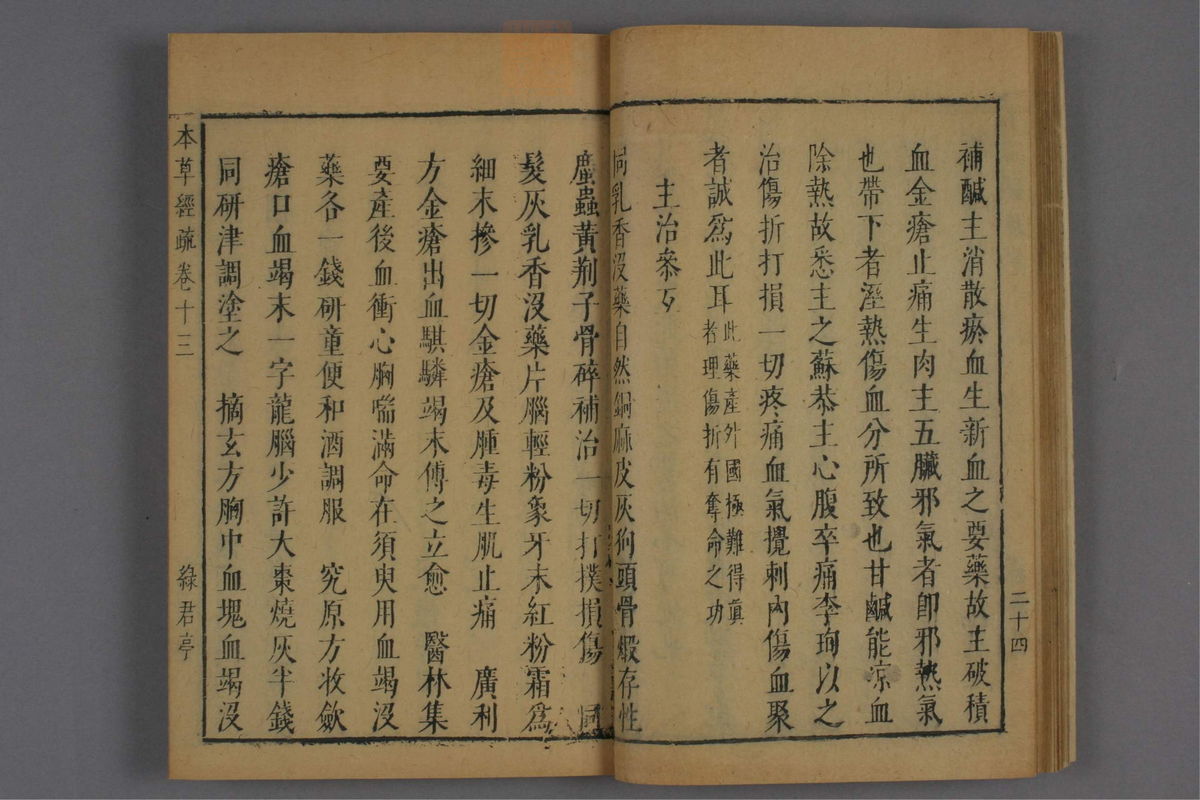 補鹹主消散瘀血生新血之要藥故主破積
血金瘡止痛生肉主五臟邪氣者卽邪熱氣
也帶下者溼熱傷血分所致也甘鹹能涼血
除熱故悉主之蘇恭主心腹卒痛李珣以之
治傷折打損一切疼痛血氣攪刺內傷血聚
者誠爲此耳此藥產外國極難得眞
者理傷折有奪命之功
主治參互
同乳香沒藥自然銅麻皮灰狗頭骨煅存性
䗪蟲黃荆子骨碎補治一切打撲損傷 同
髮灰乳香沒藥片腦輕粉象牙末紅粉霜爲
細末摻一切金瘡及腫毒生肌止痛 廣利
方金瘡出血騏驎竭末傅之立愈 醫林集
要產後血衝心胸喘滿命在須臾用血竭沒
藥各一錢研童便和酒調服 究原方收歛
瘡口血竭末一字龍腦少許大棗燒灰半錢
同研津調塗之 摘玄方胸中血塊血竭沒
二十四
本草經疏 卷十三 綠君亭